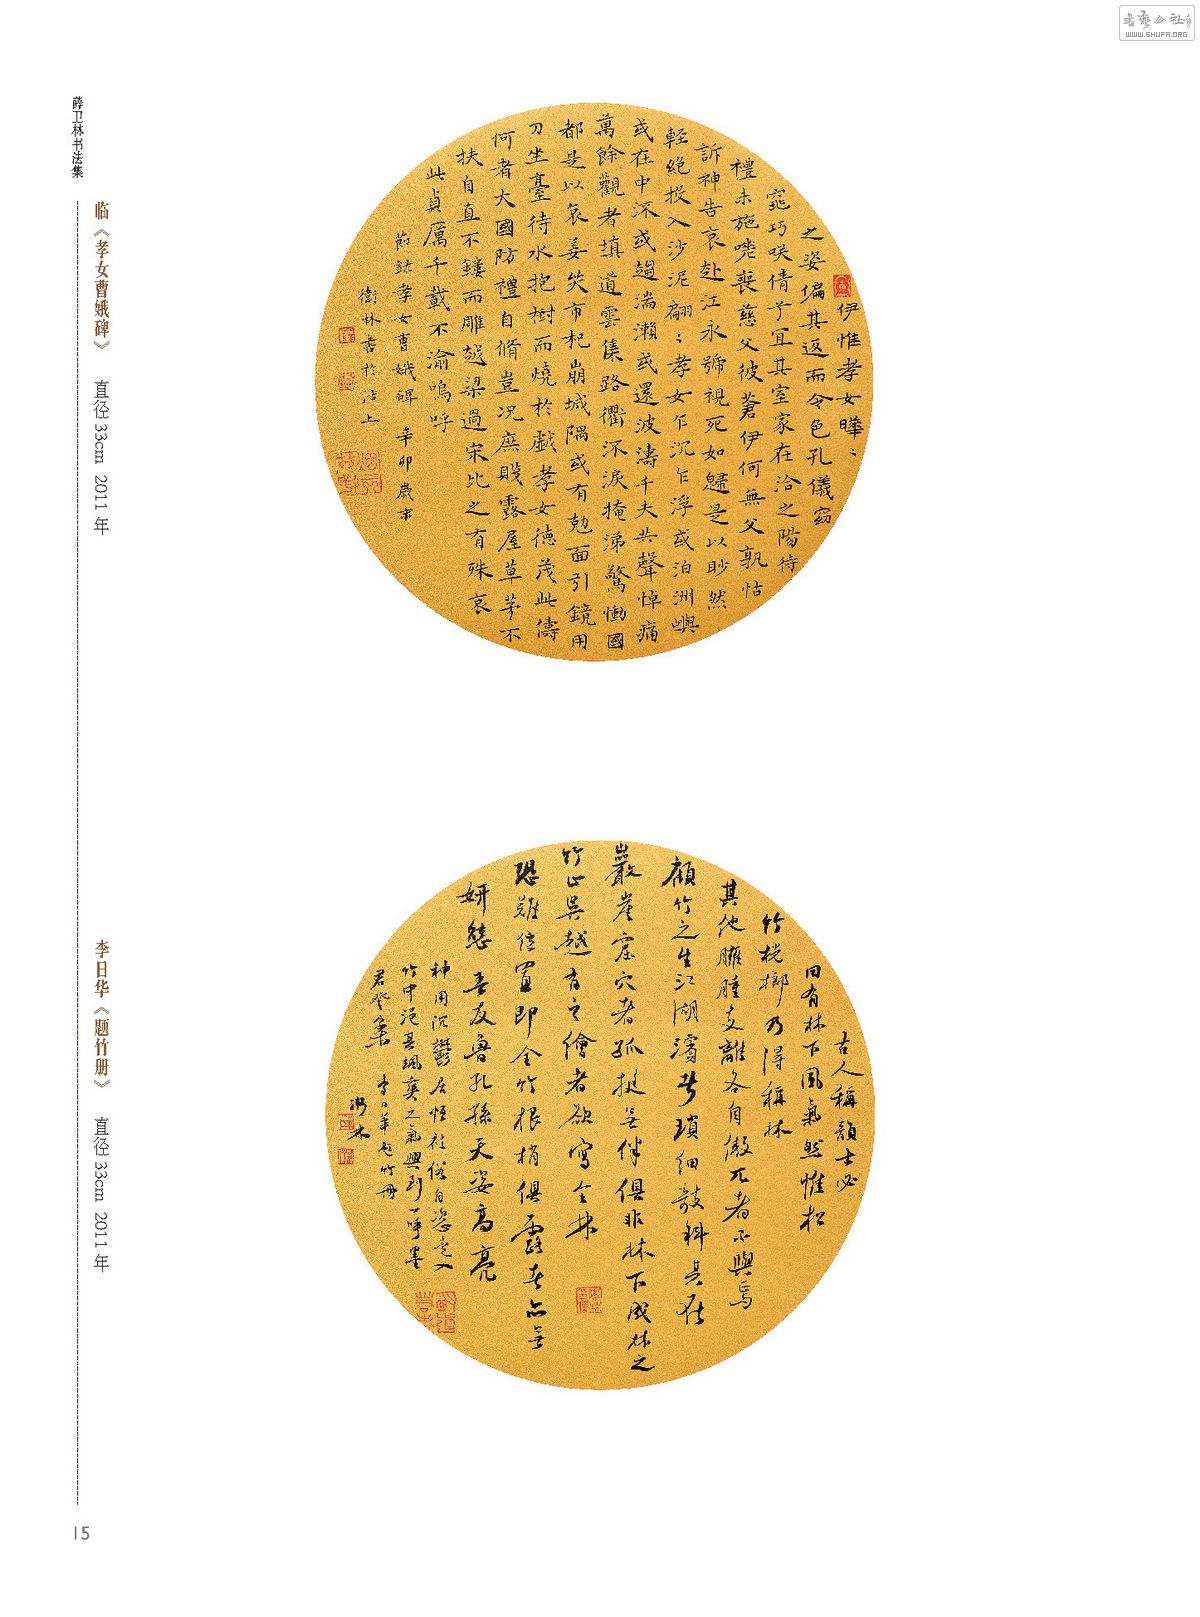 書藝公社
WWW.SHUFA.ORG
薛卫林书法集
临《孝女曹娥碑》 直径33cm 2011年
伊惟孝女曄：
之姿偏其返而令色孔儀窈
窕巧咲倩兮宜其室家在洽之陽待
禮未施嗟喪慈父彼蒼伊何無父孰怙
訴神告哀赴江永號視死如歸是以眇然
輕絶投入沙泥翩：孝女乍沉乍浮或泊洲嶼
或在中流或趨湍瀨或還波濤千夫共聲悼痛
萬餘觀者填道雲集路衢泣淚掩涕驚慟國
都是以哀姜哭市杞崩城隅或有勊面引鏡用
刀坐臺待水抱樹而燒於戲孝女德茂此儔
何者大國防禮自脩豈况庶賤露屋草茅不
扶自直不鏤而雕越梁過宋比之有殊哀
此貞厲千載不渝嗚呼
節錄孝女曹娥碑 辛卯歲末
衛林書於沽上
李日华《题竹册》 直径33cm 2011年
古人稱韻士必
曰有林下風氣然惟松
竹桄榔乃得稱林
其他臃腫支離各自傲兀者不與焉
顧竹之生江湖濱者瑣細數科其在
巖崖窟穴者孤挺無伴俱非林下成林之
竹止吳越有之繪者欲寫全林
恐難位置即全竹根梢俱露者亦無
妍態 吾友魯孔孫天姿高亮
神用沉鬱居恒於俗自恣走入
竹中浥其颯爽之氣興到一呼墨
君登集 李日華題竹冊
衛林
15